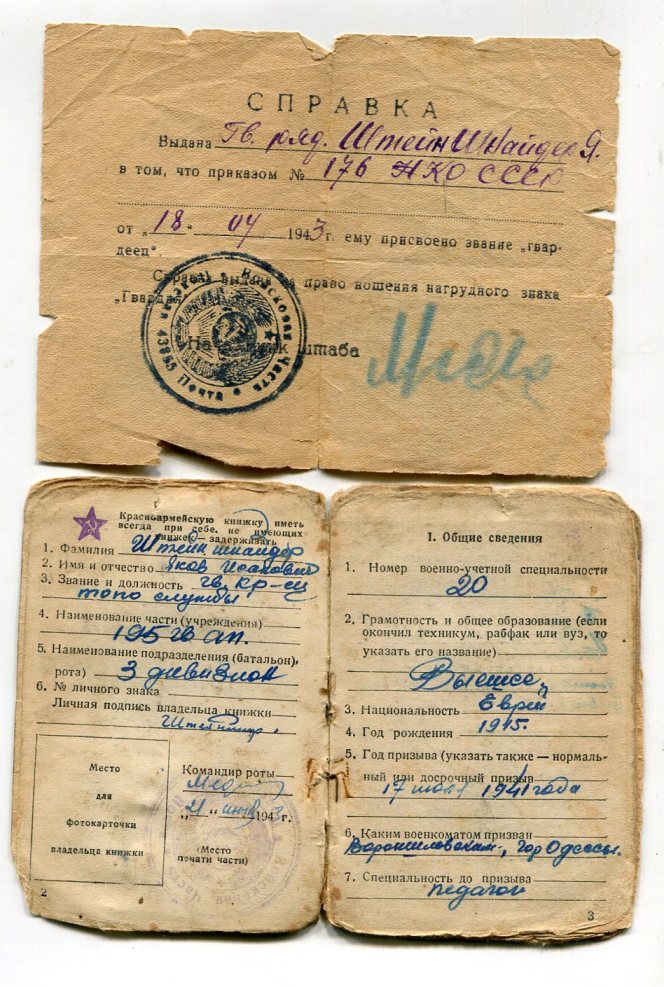 СПРАВКА
Выдана Гв. ряд. Штейншнайдер Я.
в том, что приказом № 176 НКО СССР
от „18“ 04 1943 г. ему присвоено звание „гвар-
деец“.
Справка выдана на право ношения нагрудного знака
„Гвардия“
Начальник штаба
Войсковая Часть
43865 Почта
Красноармейскую книжку иметь
всегда при себе. не имеющих
книжек — задерживать
1. Фамилия Штейншнайдер
2. Имя и отчество Яков Исакович
3. Звание и должность гв. кр-ец
топо службы
4. Наименование части (учреждения)
195 гв ап.
5. Наименование подразделения (батальон,
рота) 3 дивизион
6. № личного знака
Личная подпись владельца книжки
Место
для
фотокарточки
владельца книжки
Командир роты
„21“ 1943 г.
(Место
печати части)
2
I. Общие сведения
1. Номер военно-учетной специальности
20
2. Грамотность и общее образование (если
окончил техникум, рабфак или вуз, то
указать его название)
Высшее
3. Национальность Еврей
4. Год рождения 1915.
5. Год призыва (указать также — нормаль-
ный или досрочный призыв
17 июля 1941 года
6. Каким военкоматом призван
Ворошиловским, гор Одессы.
7. Специальность до призыва
педагог
3